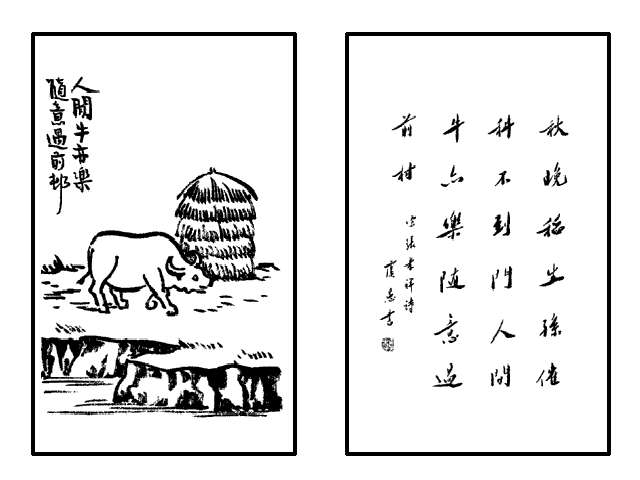 人閒牛亦樂
隨意過前邨
秋晚稻生孫催
科不到門人閒
牛亦樂随意過
前村
宋張孝祥詩
虞愚書